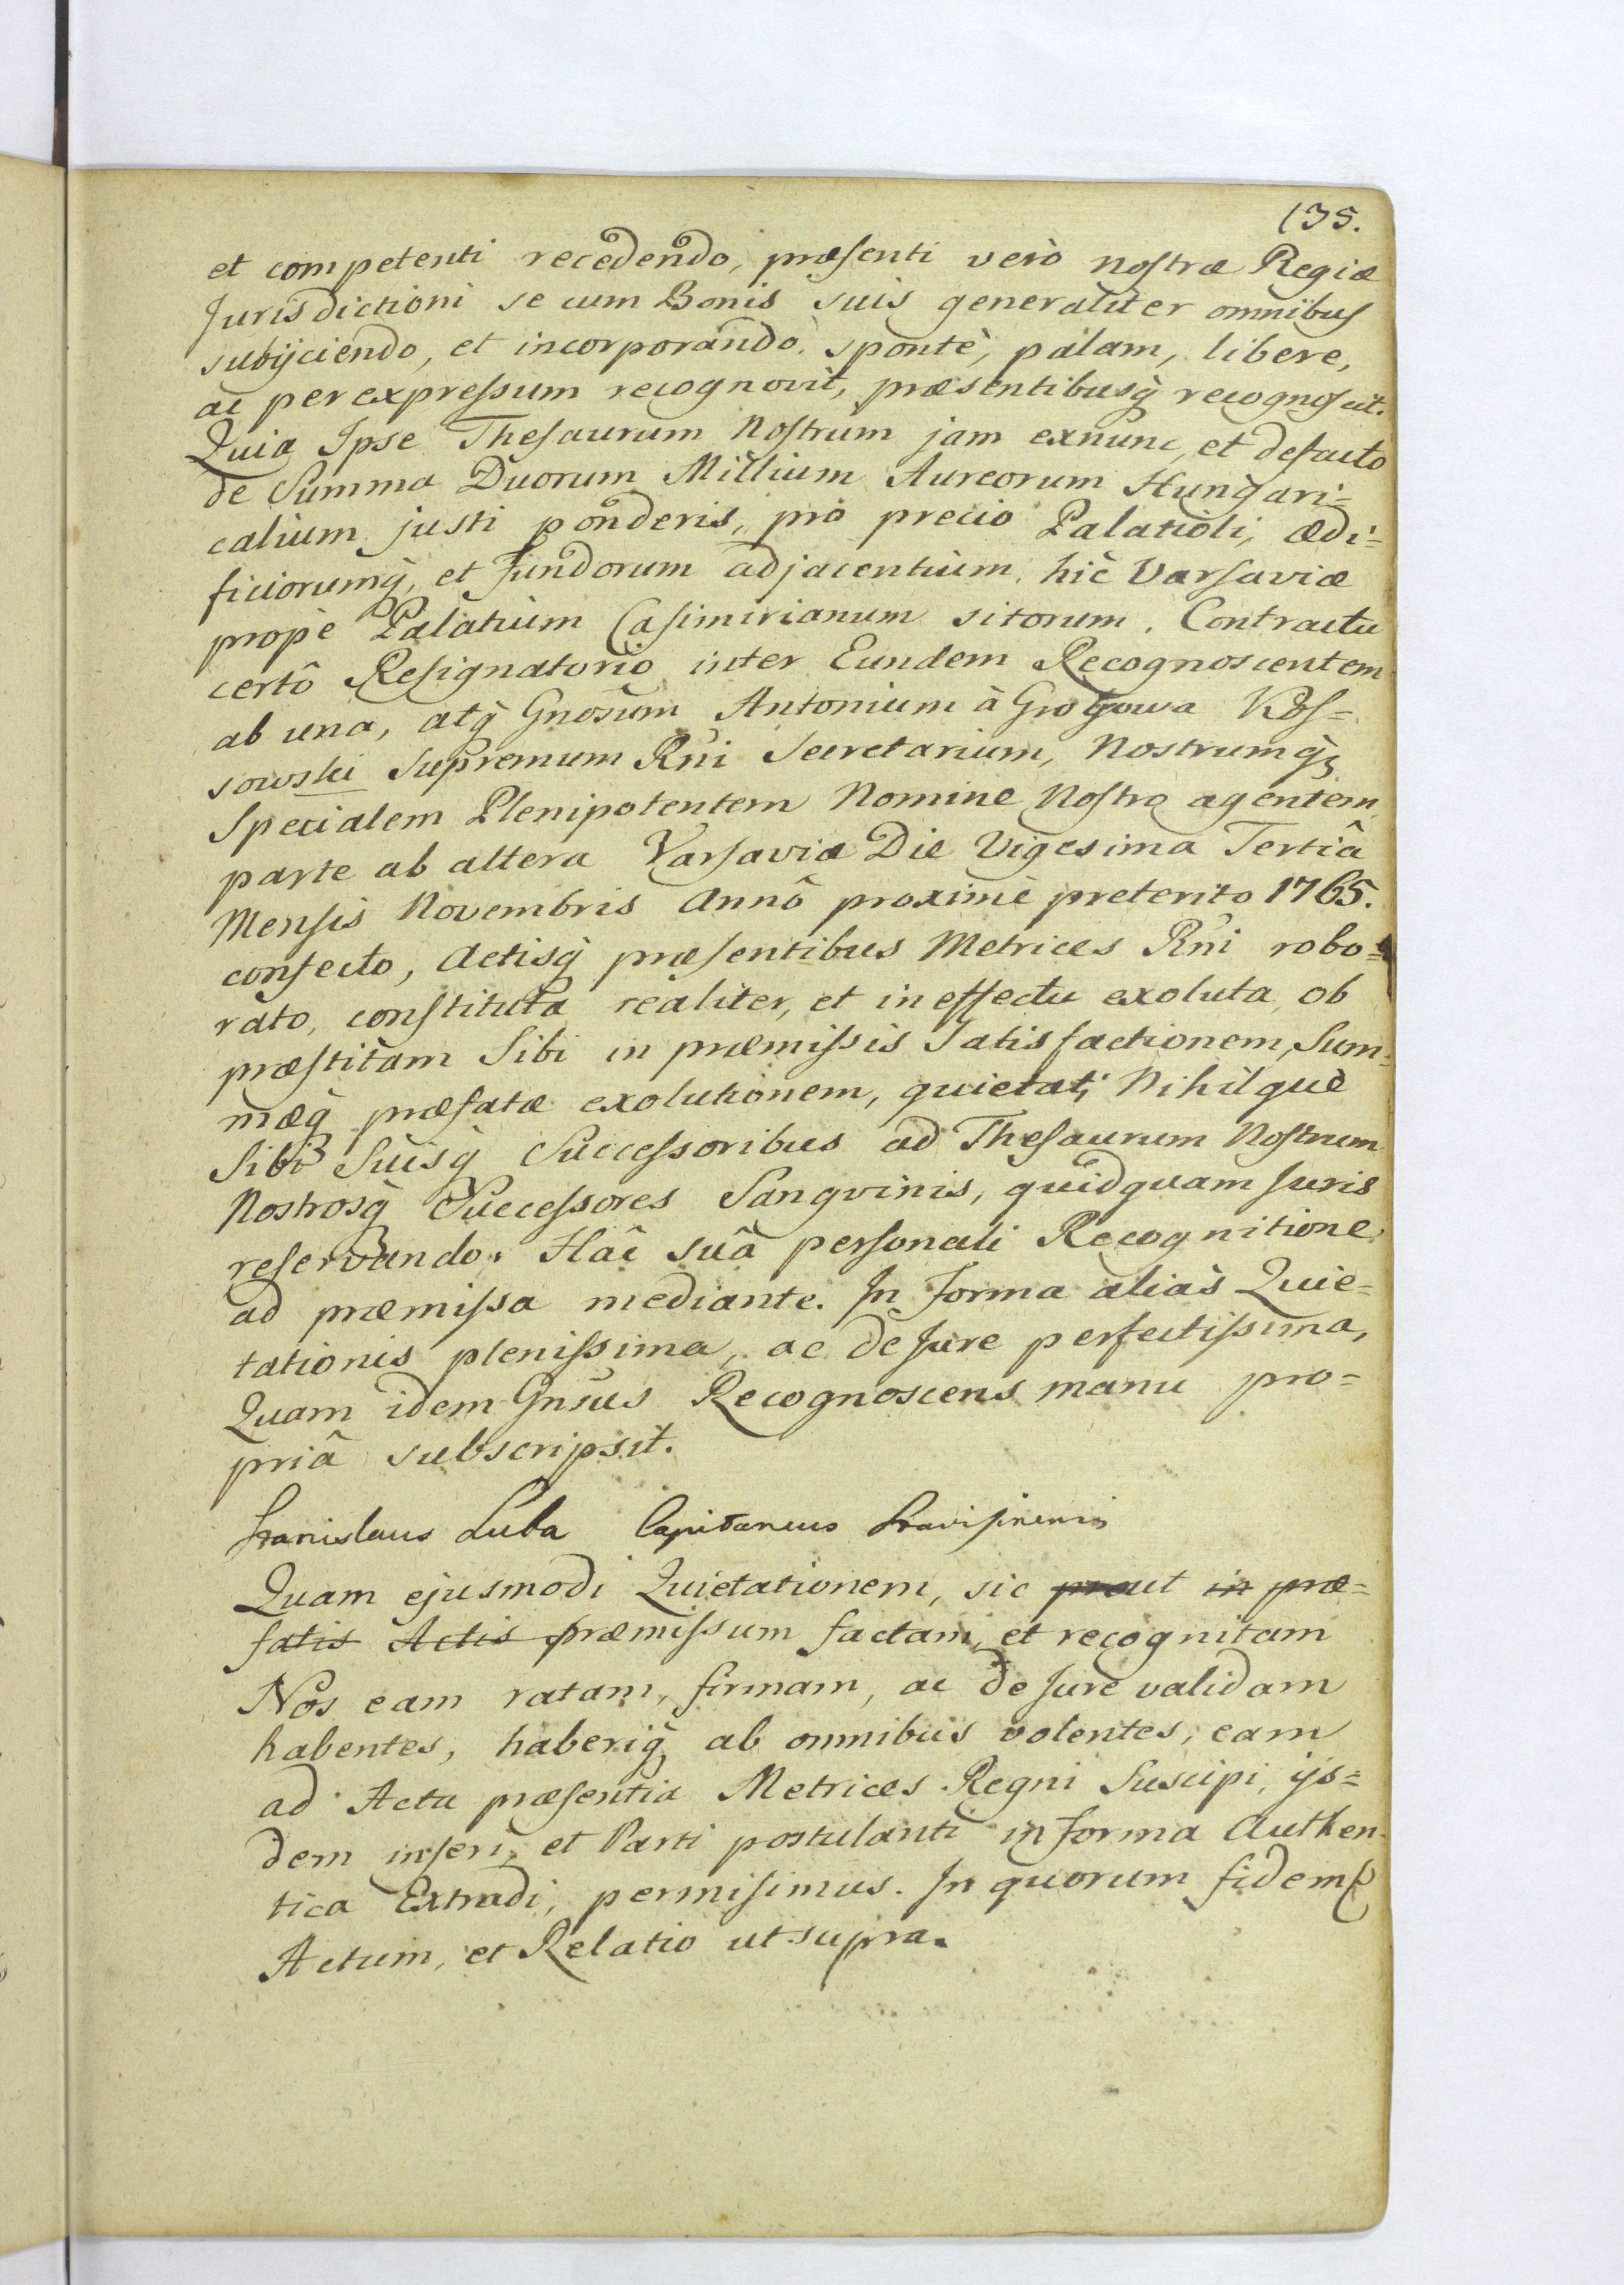 135.
et competenti recedendo, præsenti verò nostræ Regiæ
Jurisdictioni se cum Bonis suis generaliter omnibus
subijciendo, et incorporando. spontè, palam, libere,
ac per expressum recognovit, præsentibusq̀ recognoscit.
Quia Ipse Thesaurum Nostrum jam exnunc, et defacto
de Summa Duorum Millium Aureorum Hungari=
calium justi ponderis, pro precio Palatioli, ædi=
ficiorumq̀, et Fundorum adjacentium, hic Varsaviæ
propè Palatium Casimirianum sitorum. Contractu
certô Resignatorio inter Eundem Recognoscentem
ab una, atq̀ Gnosum Antonium à Grogowa Kos=
sowski Supremum Rni Secretarium, Nostrumq̀
Specialem Plenipotentem Nomine Nostro agentem
parte ab altera Varsaviæ Die Vigesima Tertiâ
Mensis Novembris Annô proximè preterito 1765.
confecto, Actisq̀ præsentibus Metrices Rni robo=
rato, constituta realiter, et in effectu exoluta, ob
præstitam Sibi in præmissis Satisfactionem, Sum=
mæq̀ præfatæ exolutionem, quietat; Nihilque
Sibi Suisq̀ Successoribus ad Thesaurum Nostrum
Nostrosq̀ Successores Sangvinis, quidquam Juris
reservando. Hâc suâ personali Recognitione
ad præmissa mediante. In Forma aliàs Quie=
tationis plenissima, ac de Jure perfectissima,
Quam idem Gnsus Recognoscens manu pro=
priâ subscripsit.
Stanislaus Luba Capitaneus
Quam ejusmodi Quietationem, sic prout in præ=
fatis Actis præmissum factam, et recognitam
Nos eam ratam, firmam, ac de Jure validam
habentes, haberiq̀ ab omnibus volentes, eam
ad Acta præsentia Metrices Regni Suscipi, ijs=
dem inseri, et Parti postulanti in forma Authen
tica Extradi, permisimus. In quorum fidem
Actum, et Relatio ut supra.